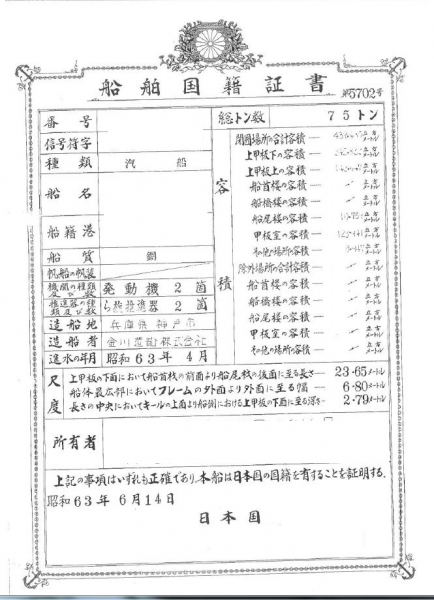 船舶国籍証書
第5702号
番号
総トン数 75トン
信号符字
種類 汽船
船名
船籍港
船質 鋼
帆船の帆装
機関の種類及び数 発動機2箇
推進器の種類及び数 ら旋推進器2箇
造船地 兵庫県神戸市
造船者 金川造船株式会社
進水の年月 昭和63年4月
容積
閉囲場所の合計容積 立方メートル
上甲板下の容積 立方メートル
上甲板上の容積 立方メートル
船首楼の容積 立方メートル
船橋楼の容積 立方メートル
船尾楼の容積 立方メートル
甲板室の容積 立方メートル
その他の場所の容積 立方メートル
除外場所の合計容積 立方メートル
船首楼の容積 立方メートル
船橋楼の容積 立方メートル
船尾楼の容積 立方メートル
甲板室の容積 立方メートル
その他の場所の容積 立方メートル
尺度
上甲板の下面において船首材の前面より船尾材の後面に至る長さ 23.65メートル
船体最広部においてフレームの外面より外面に至る幅 6.80メートル
長さの中央においてキールの上面より船側における上甲板の下面に至る深さ 2.79メートル
所有者
上記の事項はいずれも正確であり、本船は日本国の国籍を有することを証明する。
昭和63年6月14日
日本国